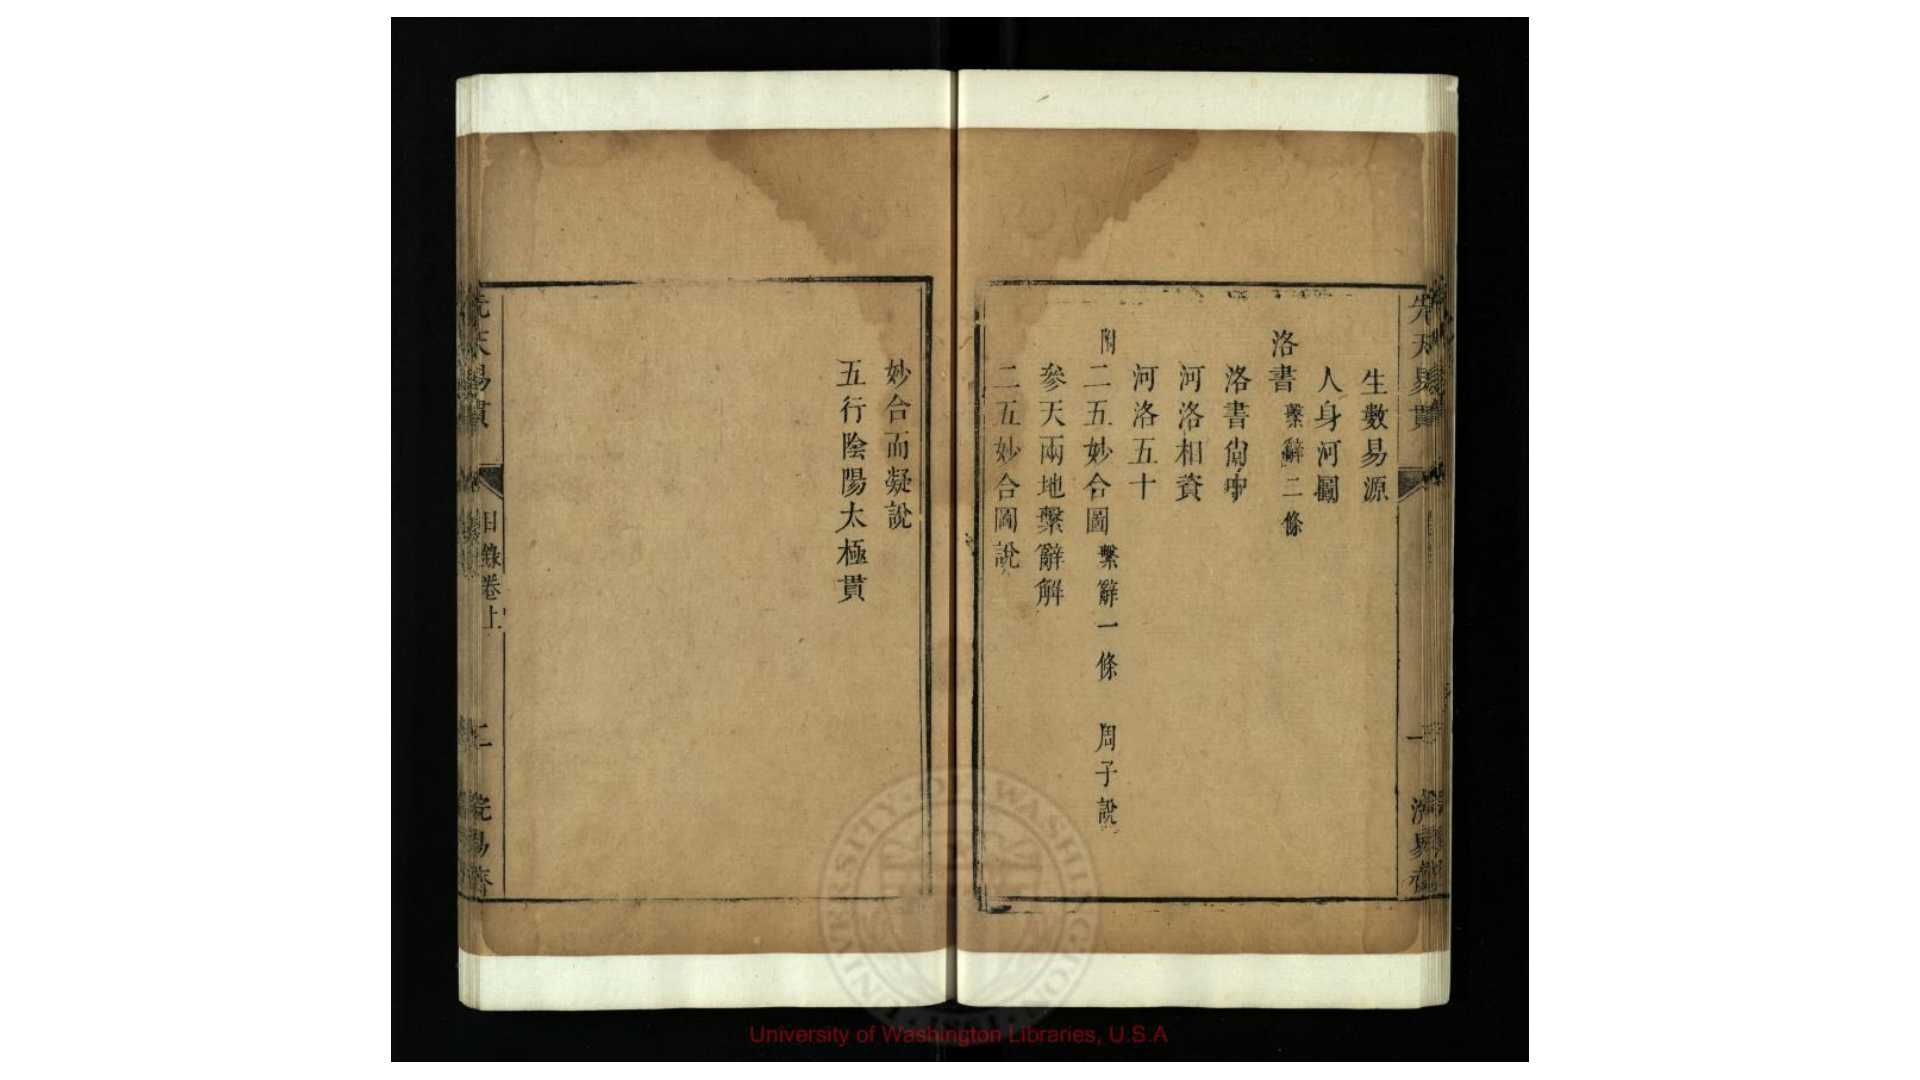 生數易源
人身河圖
洛書 繫辭二條
洛書尙中
河洛相資
河洛五十
附二五妙合圖 繫辭一條 周子說
參天兩地繫辭解
二五妙合圖說
妙合而凝說
五行陰陽太極貫
先天易貫
目錄卷上
二
University of Washington Libraries, U.S.A